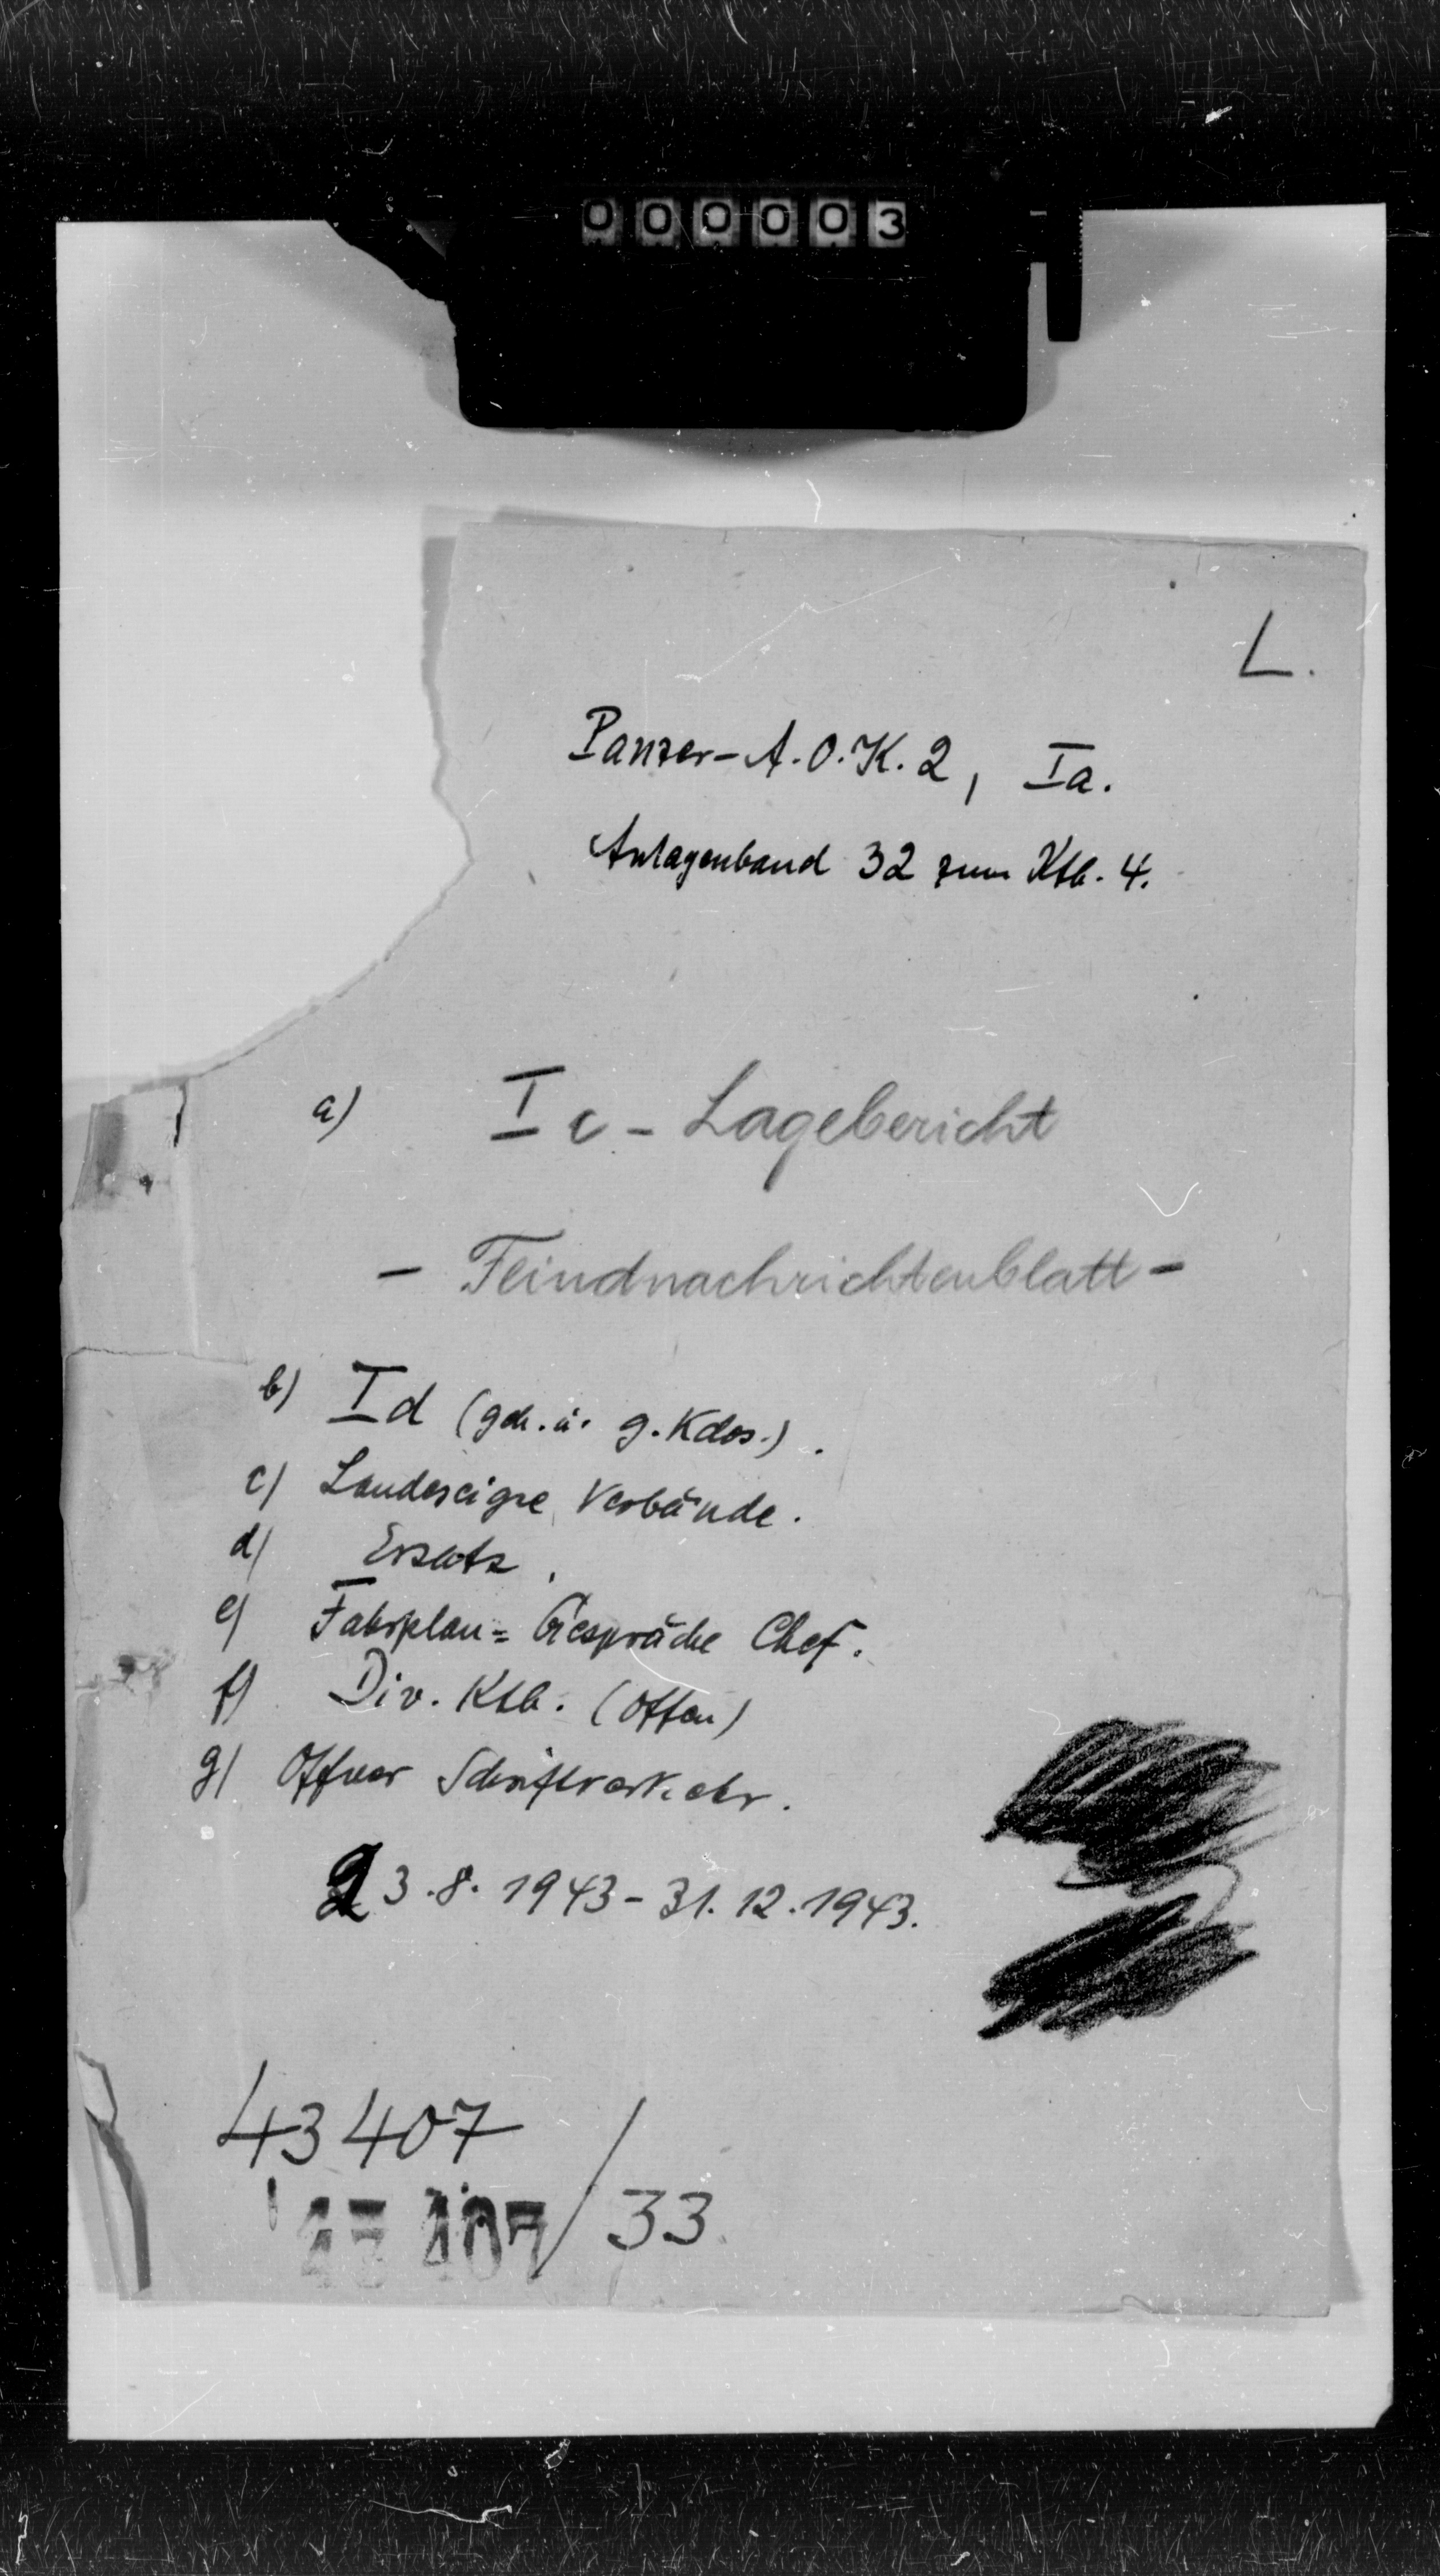 000003
L.
Panzer-A.O.K. 2, Ia.
Anlagenband 32 zum Ktb. 4.
a) Ic - Lagebericht
- Feindnachrichtenblatt -
b) Id (geh. u. g. Kdos.).
c) Landeseigne Verbände.
d) Ersatz.
e) Fahrplan= Gespräche Chef.
f) Div. Ktb. (offen)
g) Offner Schriftverkehr.
23.8.1943 - 31.12.1943.
43407
43 407 / 33